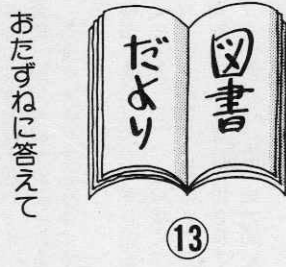 図書
だより
⑬
おたずねに答えて